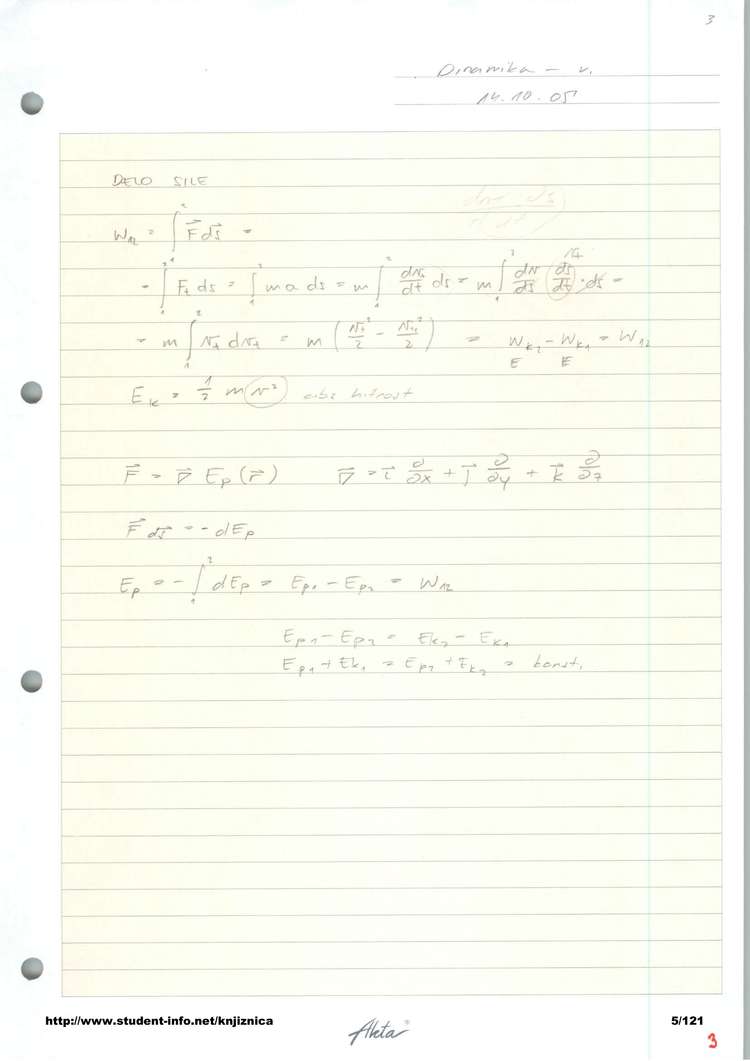 3
Dinamika - v.
14.10.05
DELO SILE
W₁₂ = ∫₁² F⃗ ds⃗ =
= ∫₁² Fₜ ds = ∫₁² m a ds = m ∫₁² dvₜ/dt ds = m ∫₁² dv/ds (ds/dt) · ds =
= m ∫₁² vₜ dvₜ = m ( /2 - /2 ) = Wₖ₂ - Wₖ₁ = W₁₂
E E
Eₖ = 1/2 m v² abs hitrost
F⃗ = ∇⃗ Eₚ (r⃗) ∇⃗ = i⃗ ∂/∂x + j⃗ ∂/∂y + k⃗ ∂/∂z
F⃗ ds⃗ = - dEₚ
Eₚ = - ∫₁² dEₚ = Eₚ₁ - Eₚ₂ = W₁₂
Eₚ₁ - Eₚ₂ = Eₖ₂ - Eₖ₁
Eₚ₁ + Eₖ₁ = Eₚ₂ + Eₖ₂ = konst.
http://www.student-info.net/knjiznica
Akta
5/121
3